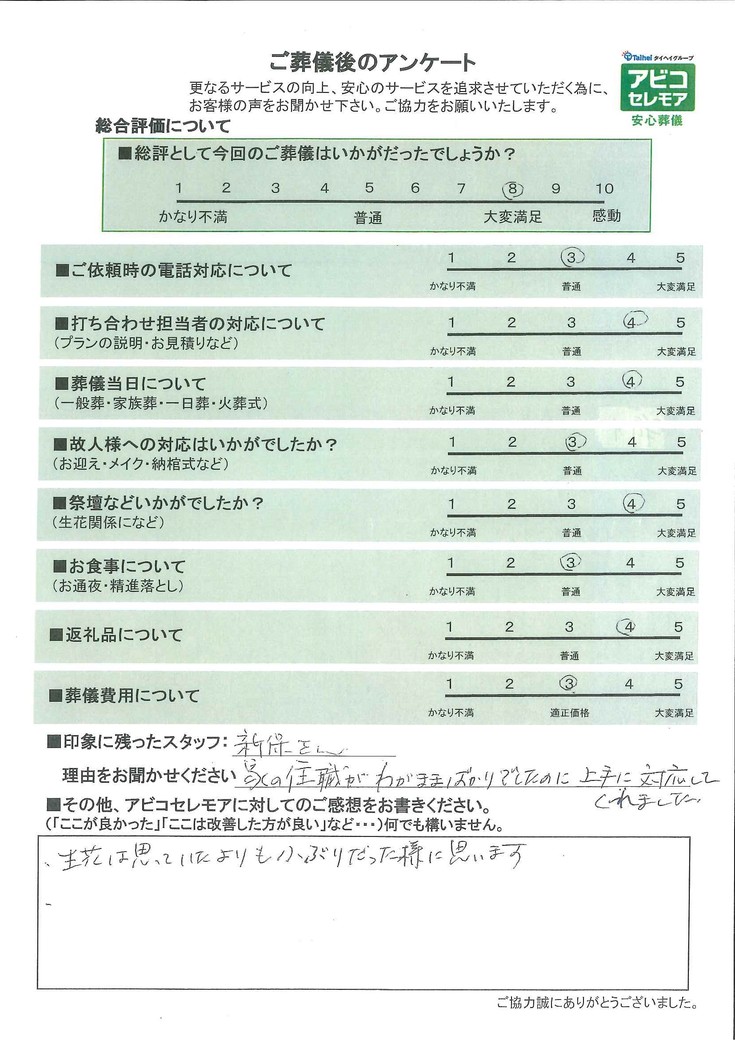 ご葬儀後のアンケート
Taihei タイヘイグループ
アビコ
セレモア
安心葬儀
更なるサービスの向上、安心のサービスを追求させていただく為に、
お客様の声をお聞かせ下さい。ご協力をお願いいたします。
総合評価について
■総評として今回のご葬儀はいかがだったでしょうか？
1 2 3 4 5 6 7 8 9 10
かなり不満 普通 大変満足 感動
■ご依頼時の電話対応について
1 2 3 4 5
かなり不満 普通 大変満足
■打ち合わせ担当者の対応について
(プランの説明・お見積りなど)
1 2 3 4 5
かなり不満 普通 大変満足
■葬儀当日について
(一般葬・家族葬・一日葬・火葬式)
1 2 3 4 5
かなり不満 普通 大変満足
■故人様への対応はいかがでしたか？
(お迎え・メイク・納棺式など)
1 2 3 4 5
かなり不満 普通 大変満足
■祭壇などいかがでしたか？
(生花関係になど)
1 2 3 4 5
かなり不満 普通 大変満足
■お食事について
(お通夜・精進落とし)
1 2 3 4 5
かなり不満 普通 大変満足
■返礼品について
1 2 3 4 5
かなり不満 普通 大変満足
■葬儀費用について
1 2 3 4 5
かなり不満 適正価格 大変満足
■印象に残ったスタッフ： 新保さん
理由をお聞かせください の住職がわがままばかりでしたのに上手に対応して
くれました
■その他、アビコセレモアに対してのご感想をお書きください。
(「ここが良かった」「ここは改善した方が良い」など・・・)何でも構いません。
、生花は思っていたよりも小ぶりだった様に思います
ご協力誠にありがとうございました。